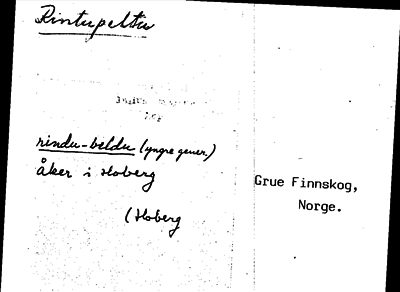 Rintupeltu
rindu-beldu (yngre gener.)
åker i Hoberg
(Hoberg
Grue Finnskog,
Norge.